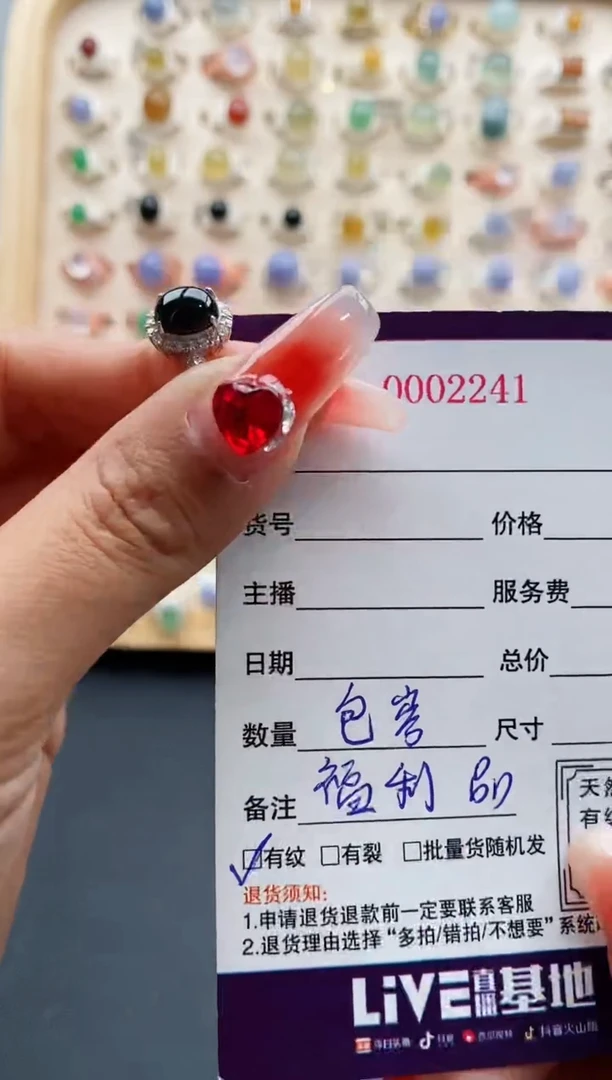 0002241
货号 价格
主播 服务费
日期 总价
数量 包 尺寸
备注 福利
天然
有纹
□有纹 □有裂 □批量货随机发
退货须知:
1.申请退货退款前一定要联系客服
2.退货理由选择“多拍/错拍/不想要”系统
LiVE直播基地
今日头条 抖音 西瓜视频 抖音火山版